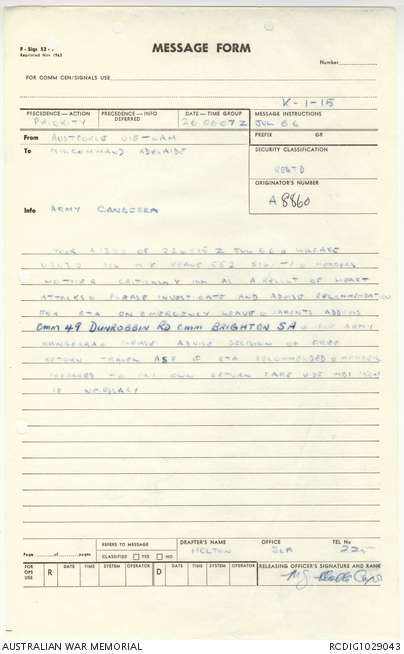 F - Sigs 52
Reprinted Nov 1963
MESSAGE FORM
Number
FOR COMM CEN/SIGNALS USE
K-1-15
PRECEDENCE — ACTION
PRIORITY
PRECEDENCE — INFO
DEFERRED
DATE — TIME GROUP
260607Z
MESSAGE INSTRUCTIONS
JUL 66
From AUSTFORCE VIETNAM
PREFIX GR
To MILCOMMAND ADELAIDE
SECURITY CLASSIFICATION
RESTD
ORIGINATOR'S NUMBER
A 8860
Info ARMY CANBERRA
YOUR OF Z JUL 66
552 SIG MEMBERS
MOTHER CRITICALLY ILL AS A RESULT OF HEART
ATTACK PLEASE INVESTIGATE AND ADVISE RECOMMENDATION
FOR RTA ON EMERGENCY LEAVE PARENTS ADDRESS
CMM 49 DUNROBBIN RD CMM BRIGHTON SA FOR ARMY
CANBERRA PLEASE ADVISE DECISION OF FREE
RETURN TRAVEL IF RTA RECOMMENDED MEMBER
PREPARED TO PAY OWN RETURN FARE
IF NECESSARY
Page of pages
REFERS TO MESSAGE
CLASSIFIED YES NO
DRAFTER'S NAME
MELTON
OFFICE
TEL No
225
FOR OPS USE
R DATE TIME SYSTEM OPERATOR
D DATE TIME SYSTEM OPERATOR
RELEASING OFFICER'S SIGNATURE AND RANK
Capt
AUSTRALIAN WAR MEMORIAL
RCDIG1029043